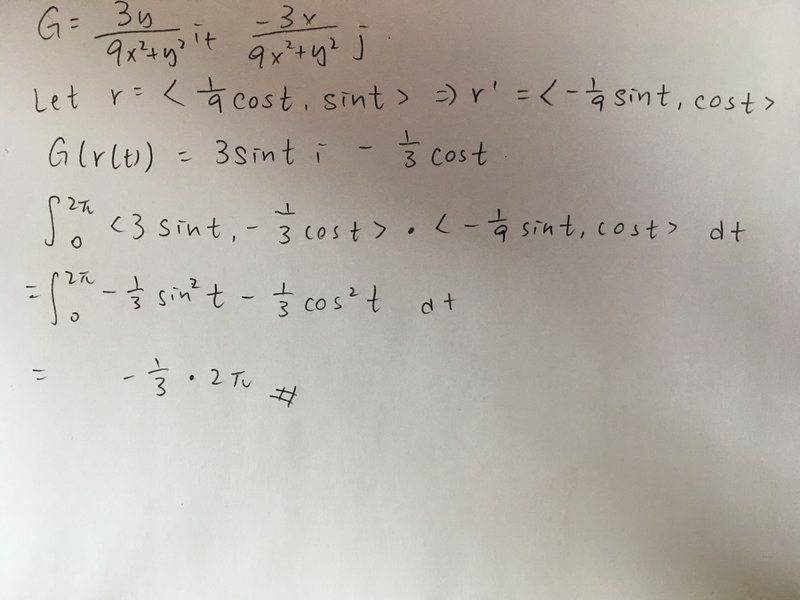 G = 3y/(9x²+y²) i + -3x/(9x²+y²) j.
Let r = < 1/9 cost, sint > ⇒ r' = < -1/9 sint, cost >
G(r(t)) = 3sint i - 1/3 cost.
∫₀^2π <3 sint, -1/3 cost> · < -1/9 sint, cost> dt
= ∫₀^2π -1/3 sin²t - 1/3 cos²t dt
= -1/3 · 2π #